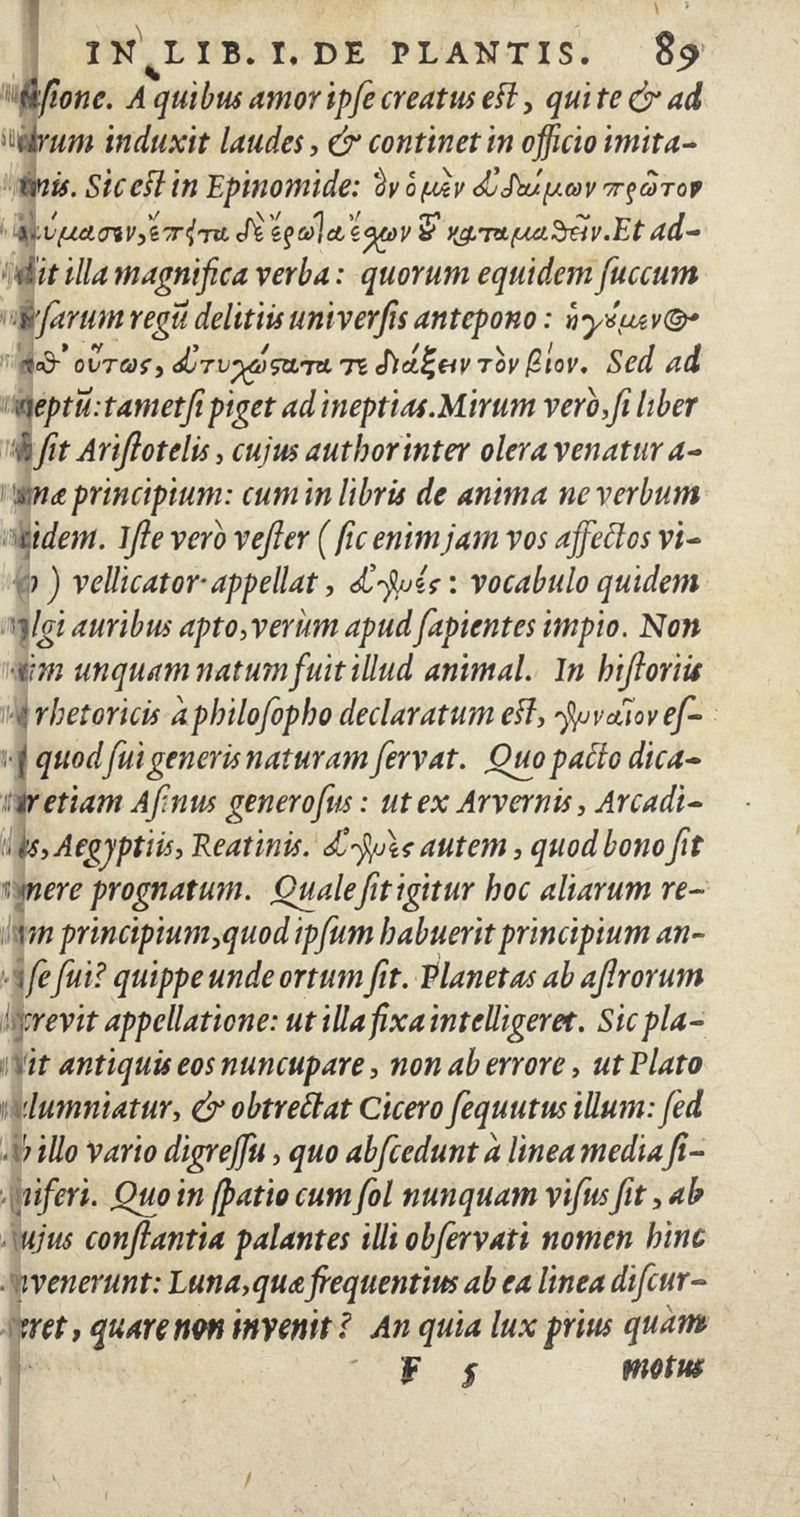 IN LIB. I. DE PLANTIS. 89
ſione. A quibus amor ipſe creatus eſt, qui te & ad
induxit laudes, & continet in officio imita-
Sic eſt in Epinomide: ὃν ὁ μὲν εὐδαίμων πρῶτον
ἔπειτα δὲ ἔρωτα ἔχων τοῦ καταμαθεῖν. Et ad-
illa magnifica verba: quorum equidem ſuccum
regū delitiis univerſis antepono: ἡγούμενος
οὕτως, εὐτυχέςατα τε διάξειν τὸν βίον. Sed ad
tametſi piget ad ineptias. Mirum verò, ſi liber
ſit Ariſtotelis, cujus author inter olera venatur a-
principium: cum in libris de anima ne verbum
Iſte verò veſter (ſic enim jam vos affectos vi-
) vellicator appellat, εὐγενές: vocabulo quidem
auribus apto, verùm apud ſapientes impio. Non
unquam natum fuit illud animal. In hiſtoriis
rhetoricis à philoſopho declaratum eſt, γενναῖον eſ-
quod ſui generis naturam ſervat. Quo pacto dica-
etiam Aſinus generoſus: ut ex Arvernis, Arcadi-
Aegyptiis, Reatinis. εὐγενὲς autem, quod bono ſit
prognatum. Quale ſit igitur hoc aliarum re-
principium, quod ipſum habuerit principium an-
ſe ſui? quippe unde ortum ſit. Planetas ab aſtrorum
appellatione: ut illa fixa intelligeret. Sic pla-
antiquis eos nuncupare, non ab errore, ut Plato
& obtrectat Cicero ſequutus illum: ſed
illo vario digreſſu, quo abſcedunt à linea media ſi-
Quo in ſpatio cum ſol nunquam viſus ſit, ab
conſtantia palantes illi obſervati nomen hinc
Luna, quæ frequentius ab ea linea diſcur-
quare non invenit? An quia lux prius quàm
F 5 motus